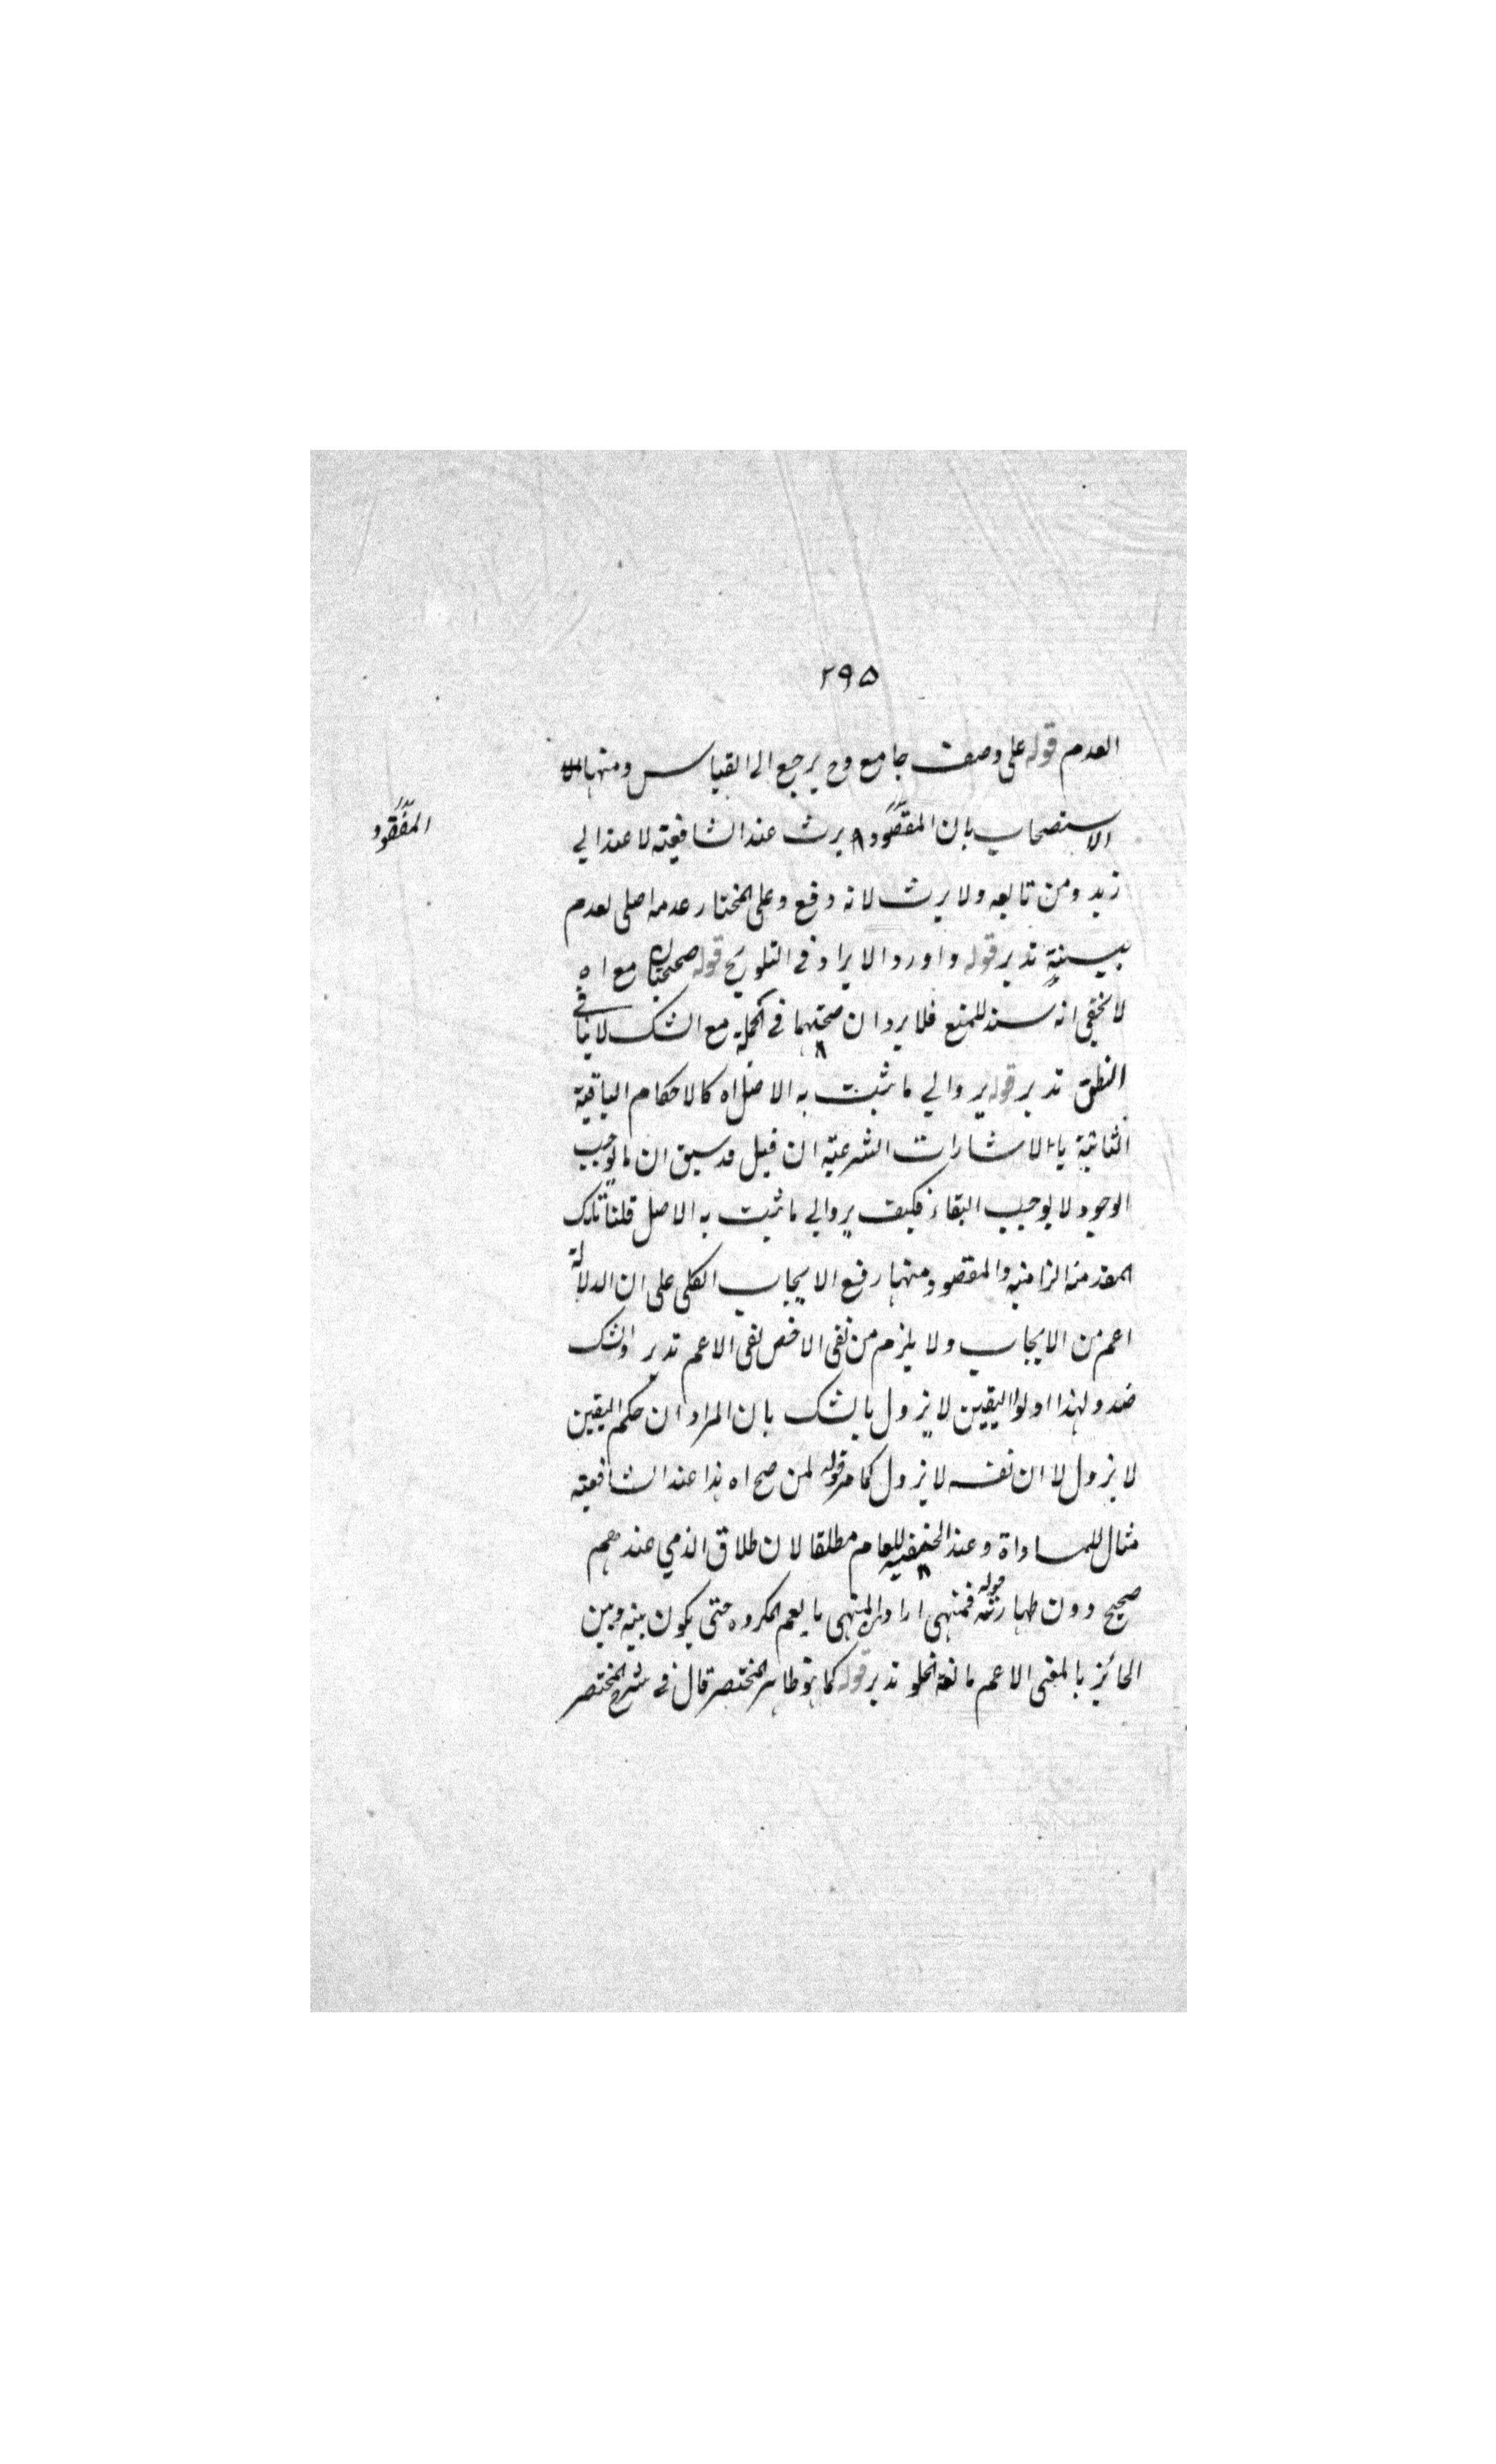 ٢٩٥
العدم قوله على وصف جامع وح يرجع الى القياس ومنها
الاستصحاب بان المقصود يرث عند الشافعية لا عند ابي
المفقود
زيد ومن تابعه ولا يرث لانه دفع وعلى المختار عدمه اصلى لعدم
ببينة تدبر قوله واورد الايراد فى التلويح قوله مع اه
لا يخفى انه سند للمنع فلا يرد ان صحتهما فى الجملة مع الشك لا ينافى
الظن تدبر قوله يروالي ما ثبت به الاصل اه كالاحكام الباقية
الثابتة بالاشارات الشرعية ان قيل قد سبق ان ما يوجب
الوجود لا يوجب البقاء فكيف يروالي ما ثبت به الاصل قلنا تلك
المقدمة الزامية والمقصود منها رفع الايجاب الكلى على ان الدلالة
اعم من الايجاب ولا يلزم من نفى الاخص نفى الاعم تدبر والشك
ضد ولهذا اولوا اليقين لا يزول بالشك بان المراد ان حكم اليقين
لا يزول لا ان نفسه لا يزول كما مر قوله لمن صح اه هذا عند الشافعية
مثال للمساواة وعند الحنفية للعام مطلقا لان طلاق الذمي عندهم
صحيح دون ظهارته قوله فمنهى اراد بالمنهى ما يعم المكروه حتى يكون بينه وبين
الجائز بالمعنى الاعم مانعة الخلو تدبر قوله كما هو ظاهر المختصر قال فى شرح المختصر